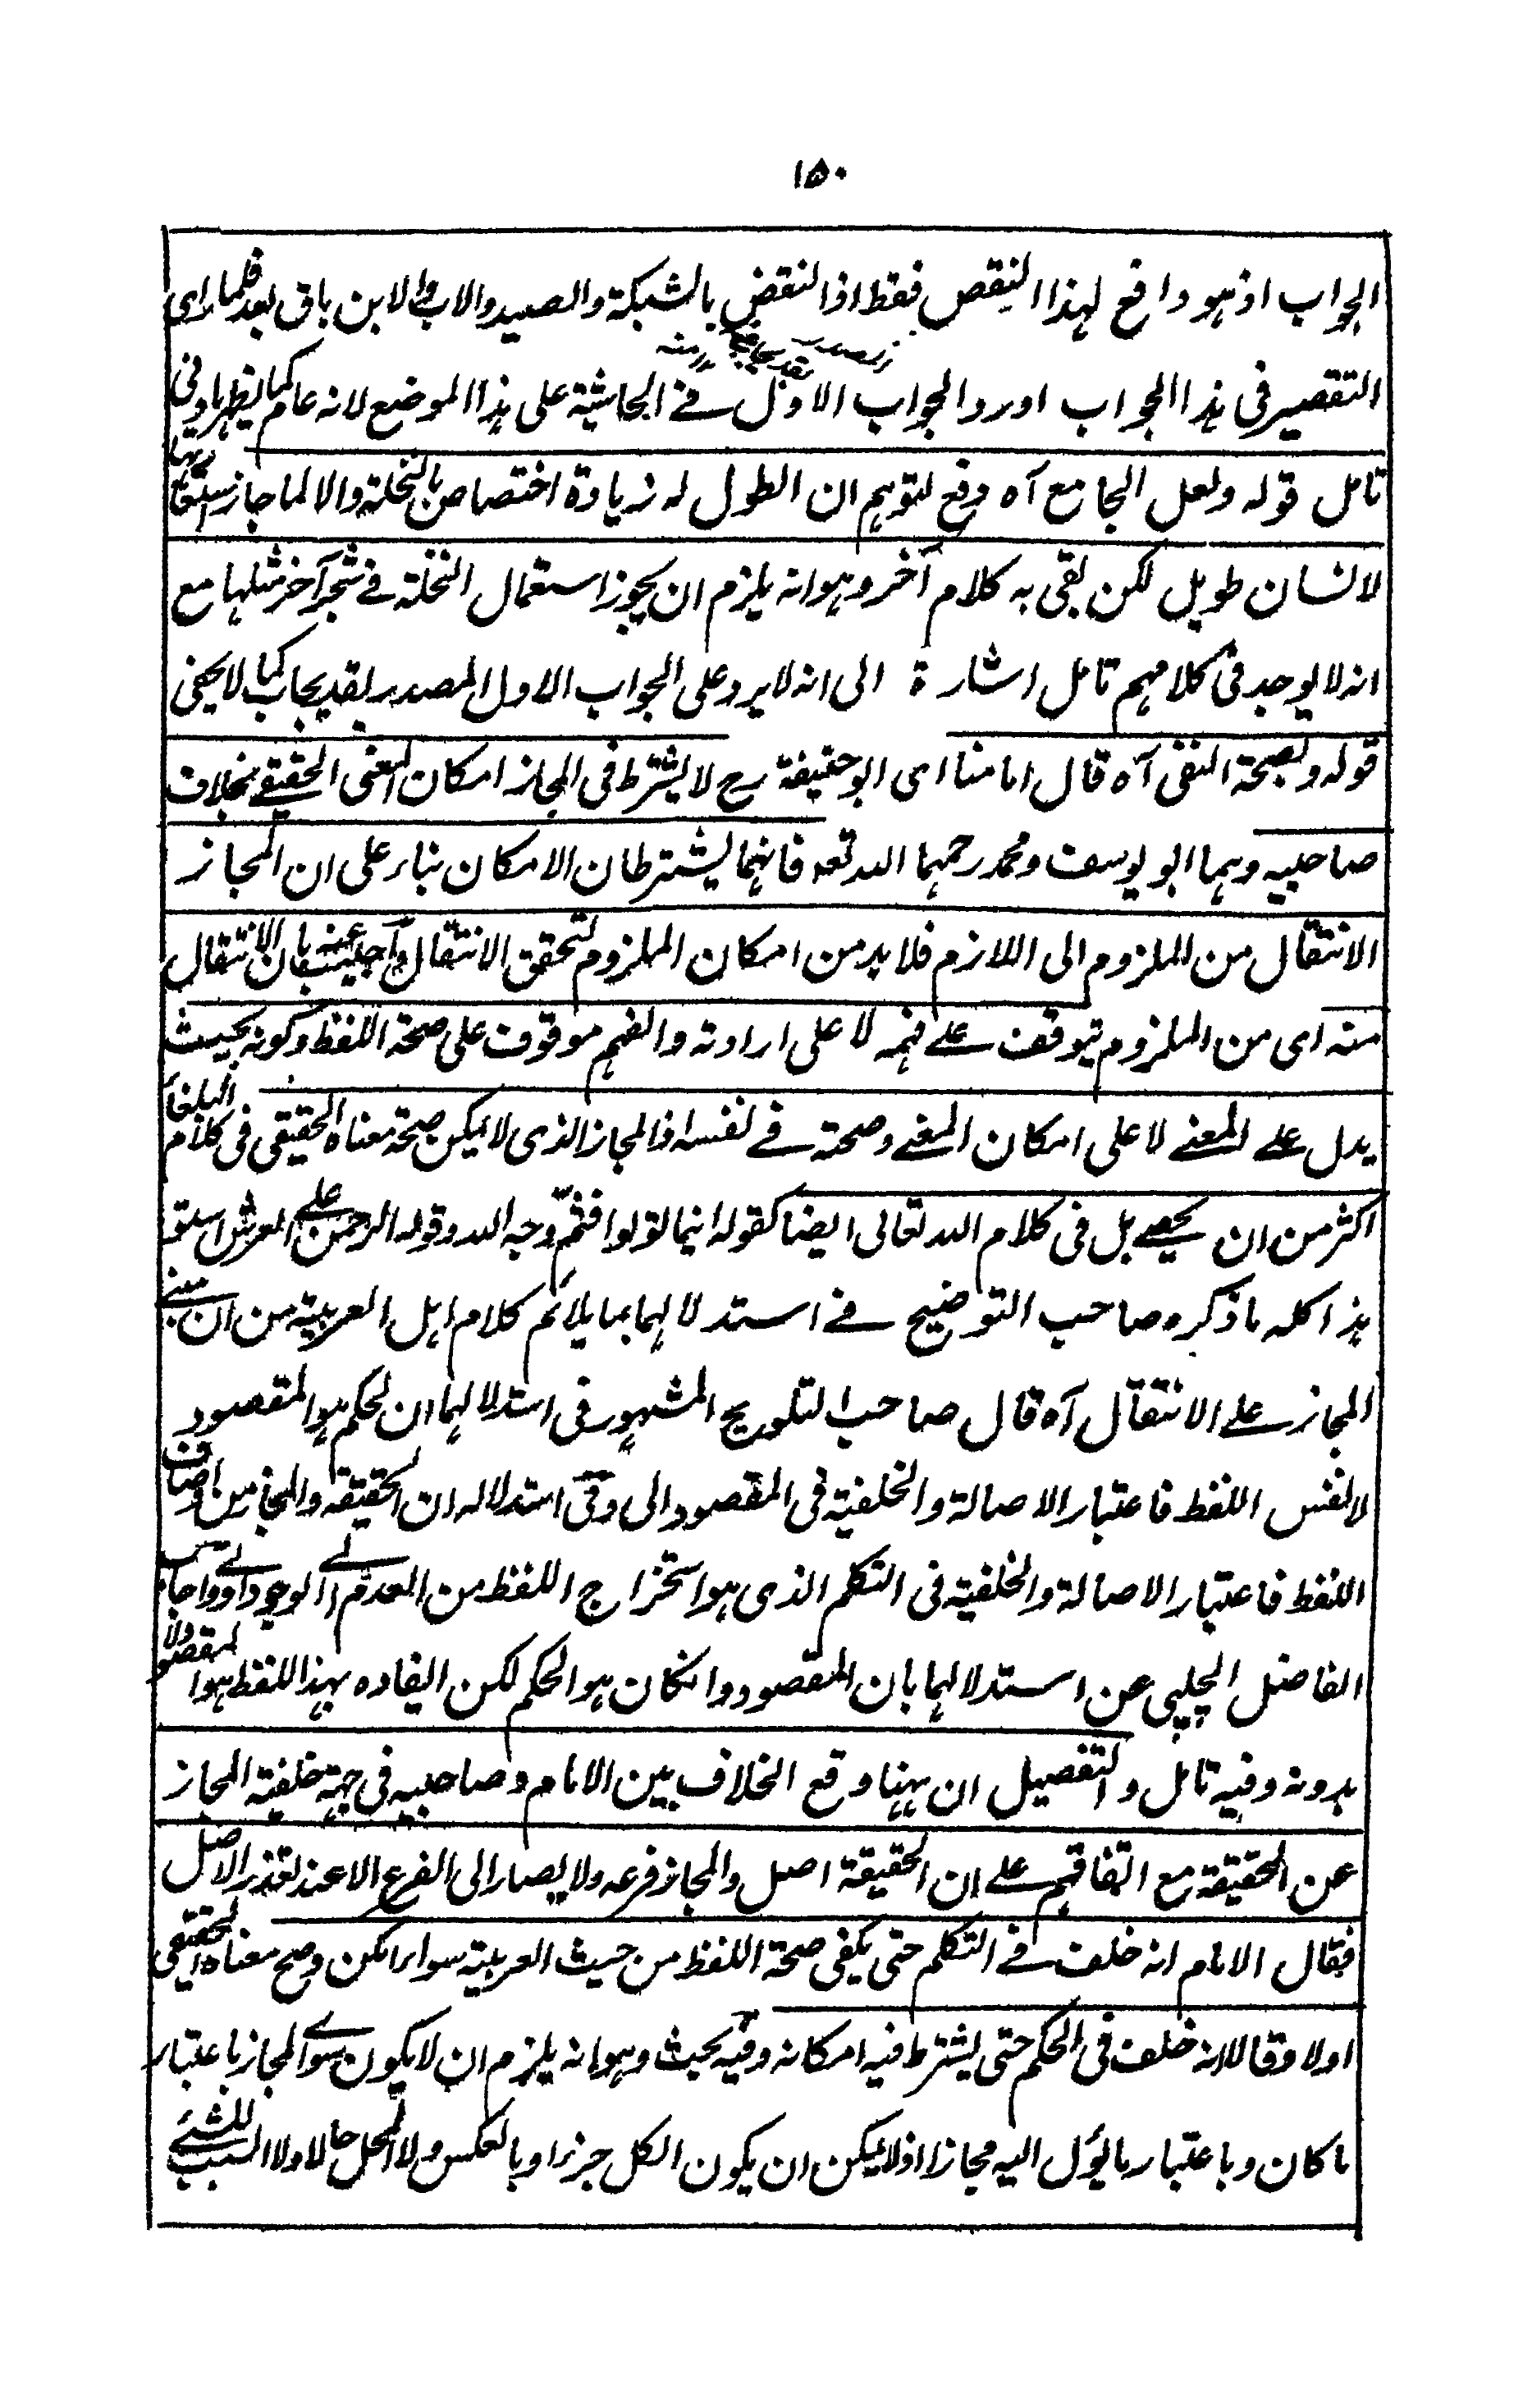 ۱۵۰
الجواب اذ هو دافع لهذا النقص فقط اذ النقض بالشبكة والصيد والاب والابن باق بعد فلما رای
التقصير فی هذا الجواب اورد الجواب الاول فے الحاشية علی هذا الموضع لانه عام كما يظهر بادنی
تامل قوله ولعل الجامع آه دفع لتوهم ان الطول له زيادة اختصاص بالنخلة والا لما جاز استعارتها
لانسان طويل لكن بقی به كلام آخر وهو انه يلزم ان يجوز استعمال النخلة فے شجر آخر مثلها مع
انه لا يوجد فی كلامهم تامل اشارة الی انه لا يرد علی الجواب الاول المصدر بقد يجاب كما لا يخفی
قوله ولصحة النفی آه قال امامنا ای ابو حنيفة رح لا يشترط فی المجاز امكان المعنی الحقيقے بخلاف
صاحبيه وهما ابو يوسف ومحمد رحمهما الله تعه فانهما يشترطان الامكان بناء علی ان المجاز
الانتقال من الملزوم الی اللازم فلا بد من امكان الملزوم لتحقق الانتقال واجيب عنه بان الانتقال
منه ای من الملزوم يتوقف علے فهمه لا علی ارادته والفهم موقوف علی صحة اللفظ وكونه بحيث
يدل علے المعنے لا علی امكان المعنے وصحته فے نفسه فالمجاز الذی لا يمكن صحة معناه الحقيقی فی كلام البلغاء
اكثر من ان يحصے بل فی كلام الله تعالی ايضا كقوله اينما تولوا فثمّ وجه الله وقوله الرحمن علے العرش استو
هذا كله ما ذكره صاحب التوضيح فے استدلالهما بما يلائم كلام اهل العربية من ان مبنے
المجاز علے الانتقال آه قال صاحب التلويح المشهور فی استدلالهما ان الحكم هو المقصود
لا نفس اللفظ فاعتبار الاصالة والخلفية فی المقصود اولی وفی استدلاله ان الحقيقة والمجاز من اوصاف
اللفظ فاعتبار الاصالة والخلفية فی التكلم الذی هو استخراج اللفظ من العدم الے الوجود اولے واجاب
الفاضل الچلپی عن استدلالهما بان المقصود وانكان هو الحكم لكن افاده بهذا اللفظ هو المقصود ولا
بدونه وفيه تامل والتفصيل ان ههنا وقع الخلاف بين الامام وصاحبيه فی جهة خلفية المجاز
عن الحقيقة مع اتفاقهم علے ان الحقيقة اصل والمجاز فرعه ولا يصار الی الفرع الا عند تعذر الاصل
فقال الامام انه خلف فے التكلم حتی يكفی صحة اللفظ من حيث العربية سواء امكن وصح معناه الحقيقی
اولا وقالا انه خلف فی الحكم حتی يشترط فيه امكانه وفيه بحث وهو انه يلزم ان لا يكون سوی المجاز باعتبار
ما كان وباعتبار ما يؤل اليه مجازا اذ لا يمكن ان يكون الكل جزءا وبالعكس ولا المحل حالا ولا السبب للشئے